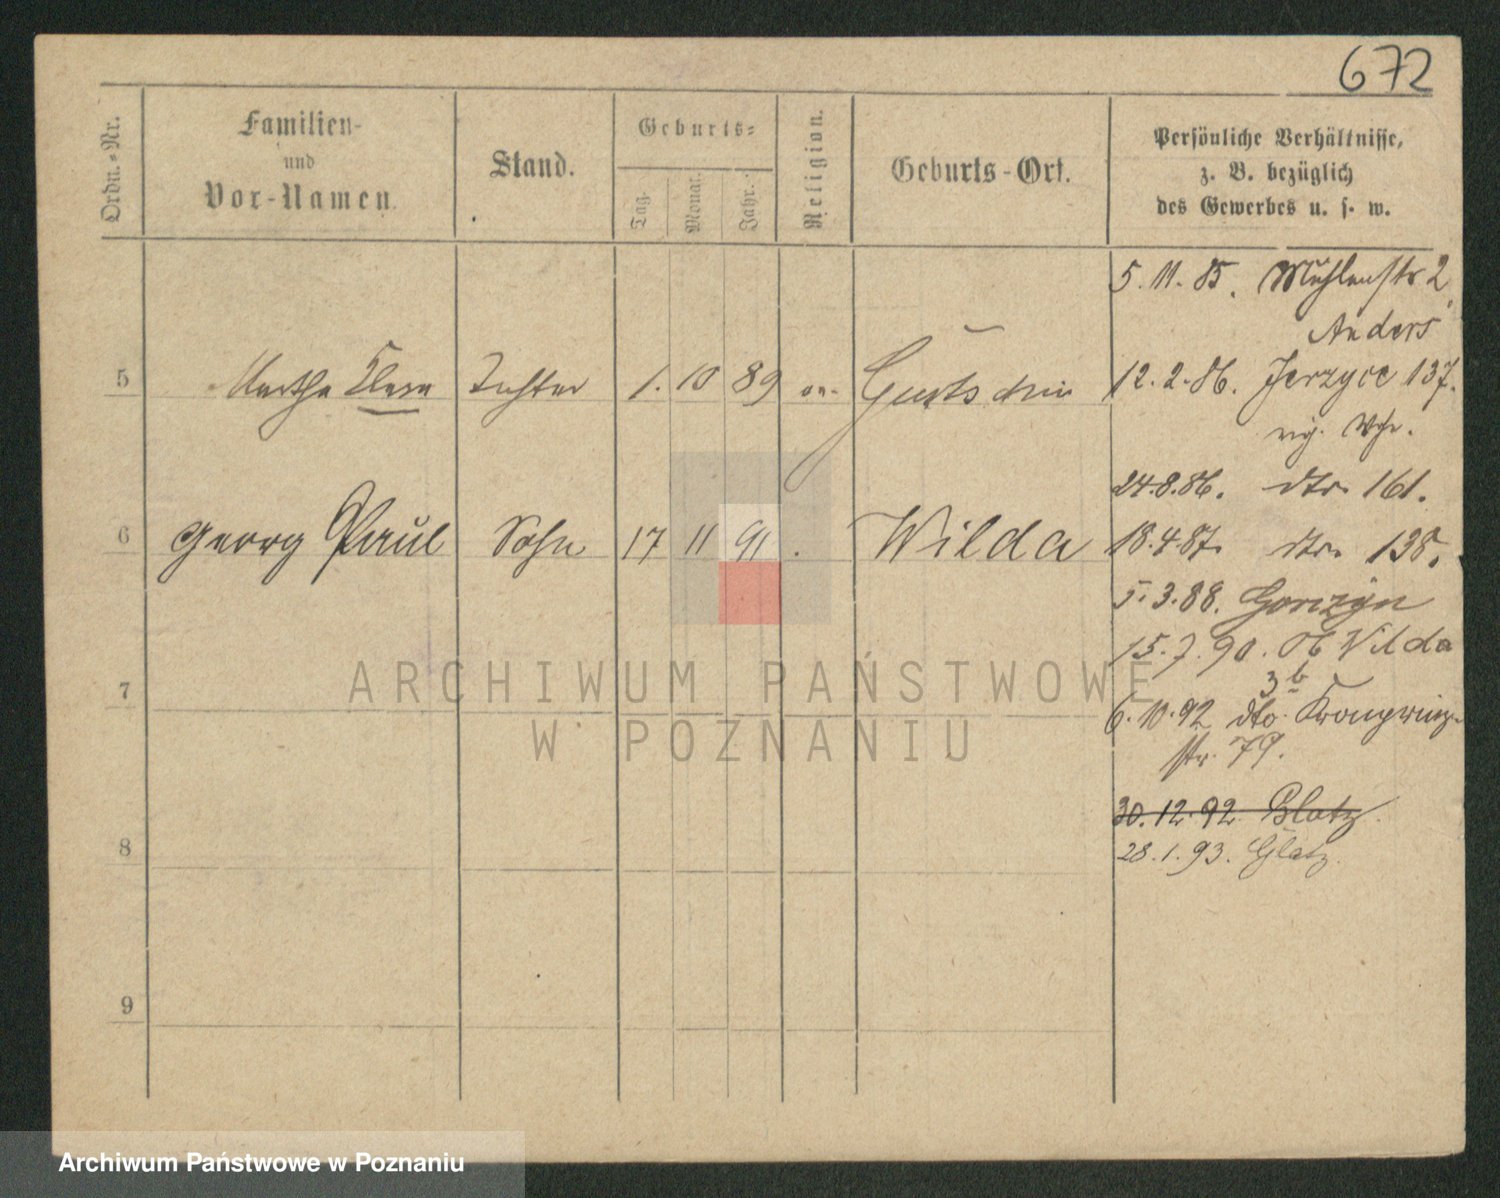 672
Ordn.-Nr.
Familien-
und
Vor-Namen.
Stand.
Geburts-
Tag.
Monat.
Jahr.
Religion.
Geburts-Ort.
Persönliche Verhältnisse,
z. B. bezüglich
des Gewerbes u. s. w.
5 Martha Clara Tochter 1. 10 89 ev. Gurtschin
6 Georg Paul Sohn 17 11 91 . Wilda
7
8
9
5. 11. 85. Mühlenstr 2.
Anders
12. 2. 86. Jerzyce 137.
24. 8. 86. dto 161.
18. 4. 87. dto 138.
5. 3. 88. Gorczyn
15. 7. 90. Ob Wilda
3b
6. 10. 92 dto. Kronprinz-
str. 79.
30. 12. 92. Glatz.
28. 1. 93. Glatz.
ARCHIWUM PAŃSTWOWE
W POZNANIU
Archiwum Państwowe w Poznaniu